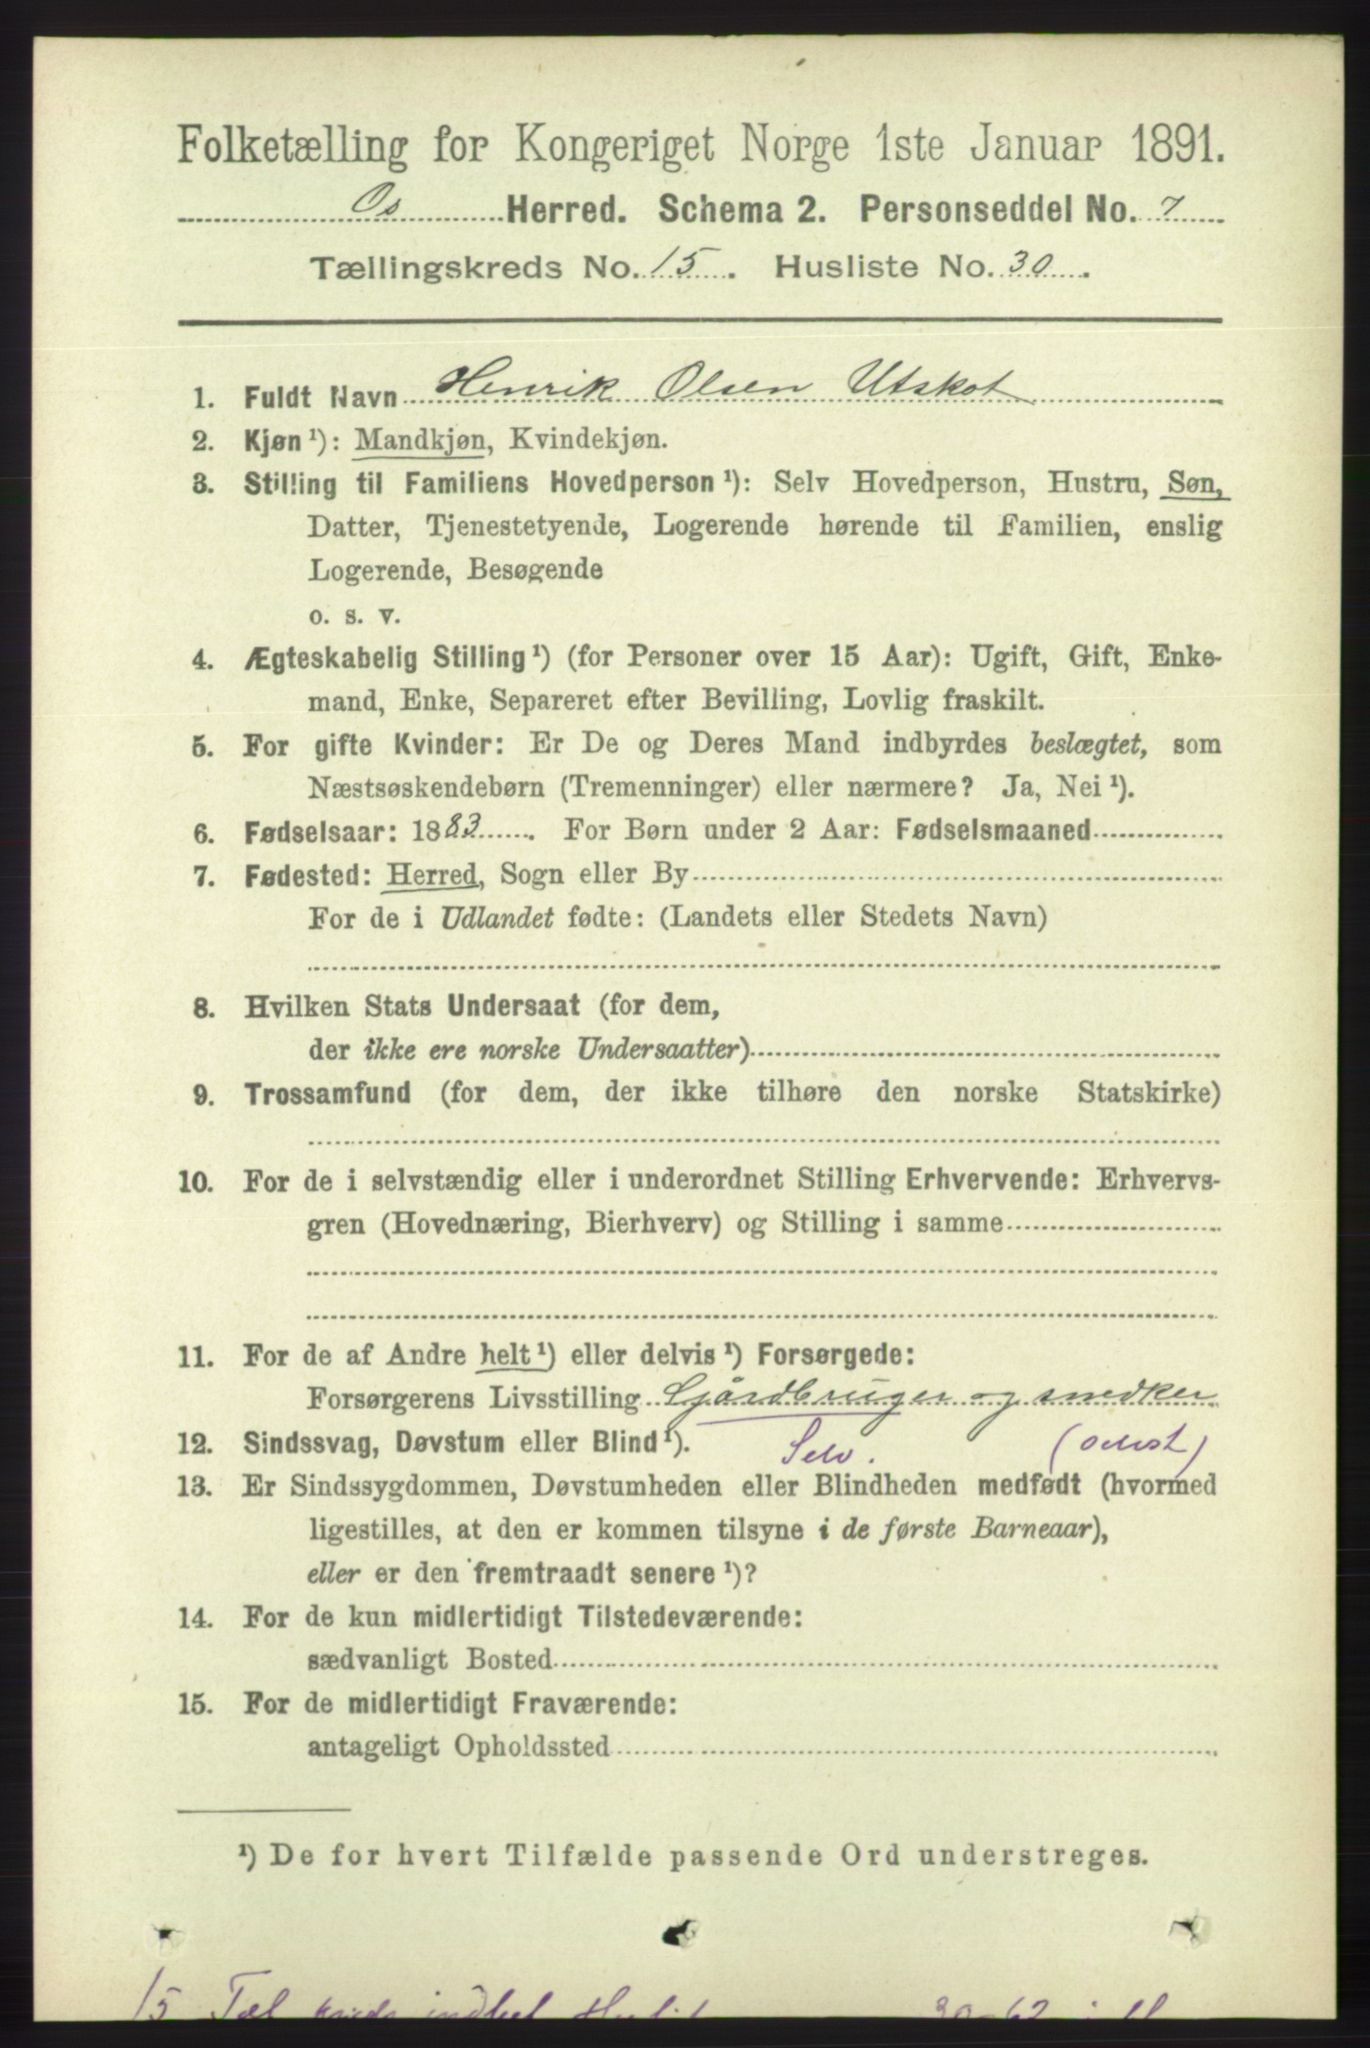 Folketælling for Kongeriget Norge 1ste Januar 1891.
Os Herred. Schema 2. Personseddel No. 7
Tællingskreds No. 15. Husliste No. 30.
1. Fuldt Navn Henrik Olsen Utskot
2. Kjøn ¹): Mandkjøn, Kvindekjøn.
3. Stilling til Familiens Hovedperson ¹): Selv Hovedperson, Hustru, Søn,
Datter, Tjenestetyende, Logerende hørende til Familien, enslig
Logerende, Besøgende
o. s. v.
4. Ægteskabelig Stilling ¹) (for Personer over 15 Aar): Ugift, Gift, Enke-
mand, Enke, Separeret efter Bevilling, Lovlig fraskilt.
5. For gifte Kvinder: Er De og Deres Mand indbyrdes beslægtet, som
Næstsøskendebørn (Tremenninger) eller nærmere? Ja, Nei ¹).
6. Fødselsaar: 1883. For Børn under 2 Aar: Fødselsmaaned
7. Fødested: Herred, Sogn eller By
For de i Udlandet fødte: (Landets eller Stedets Navn)
8. Hvilken Stats Undersaat (for dem,
der ikke ere norske Undersaatter)
9. Trossamfund (for dem, der ikke tilhøre den norske Statskirke)
10. For de i selvstændig eller i underordnet Stilling Erhvervende: Erhvervs-
gren (Hovednæring, Bierhverv) og Stilling i samme
11. For de af Andre helt ¹) eller delvis ¹) Forsørgede:
Forsørgerens Livsstilling Gjårdbruger og snedker
12. Sindssvag, Døvstum eller Blind ¹). Selv.
13. Er Sindssygdommen, Døvstumheden eller Blindheden medfødt (hvormed
ligestilles, at den er kommen tilsyne i de første Barneaar),
eller er den fremtraadt senere ¹)?
14. For de kun midlertidigt Tilstedeværende:
sædvanligt Bosted
15. For de midlertidigt Fraværende:
antageligt Opholdssted
¹) De for hvert Tilfælde passende Ord understreges.
15 Tæl